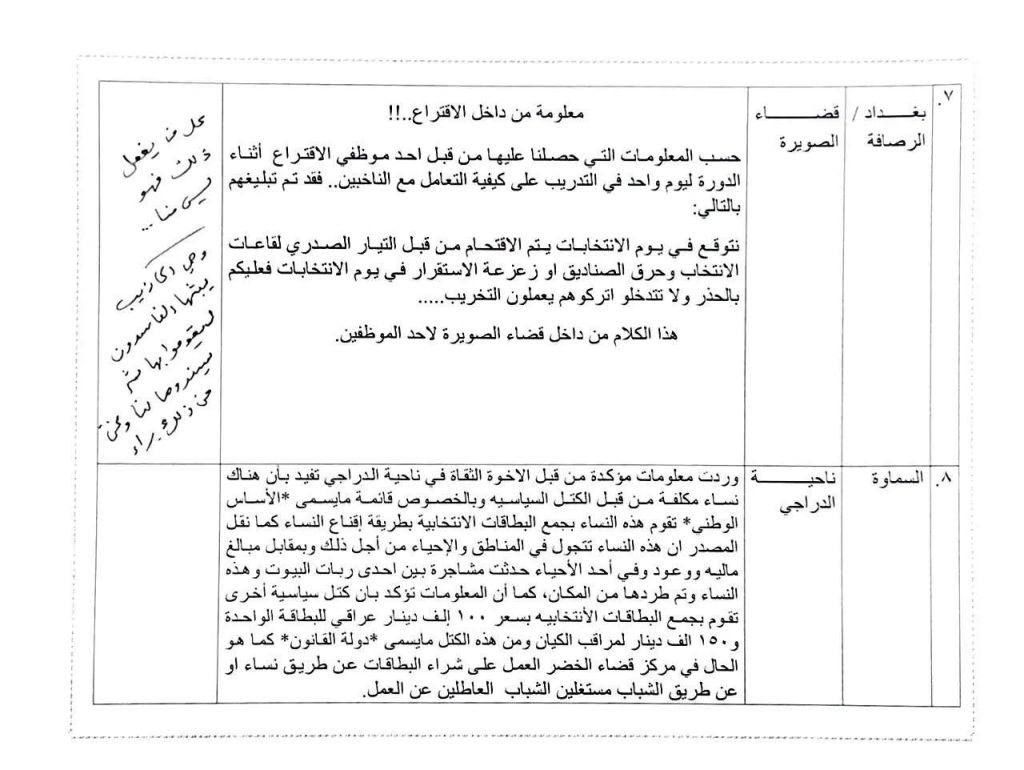 ٧.
بغداد /
الرصافة
قضاء
الصويرة
معلومة من داخل الاقتراع..!!
حسب المعلومات التي حصلنا عليها من قبل احد موظفي الاقتراع أثناء
الدورة ليوم واحد في التدريب على كيفية التعامل مع الناخبين.. فقد تم تبليغهم
بالتالي:
نتوقع في يوم الانتخابات يتم الاقتحام من قبل التيار الصدري لقاعات
الانتخاب وحرق الصناديق او زعزعة الاستقرار في يوم الانتخابات فعليكم
بالحذر ولا تتدخلو اتركوهم يعملون التخريب.....
هذا الكلام من داخل قضاء الصويرة لاحد الموظفين.
من يفعل
ذلك فهو
ليس منا...
وهي اكاذيب
يبثها الفاسدون
ليقوموا بها ثم
يسندوها لنا ونحن
من ذلك براء
٨.
السماوة
ناحية
الدراجي
وردت معلومات مؤكدة من قبل الاخوة الثقاة في ناحية الدراجي تفيد بأن هناك
نساء مكلفة من قبل الكتل السياسيه وبالخصوص قائمة مايسمى *الأساس
الوطني* تقوم هذه النساء بجمع البطاقات الانتخابية بطريقة إقناع النساء كما نقل
المصدر ان هذه النساء تتجول في المناطق والإحياء من أجل ذلك وبمقابل مبالغ
ماليه ووعود وفي أحد الأحياء حدثت مشاجرة بين احدى ربات البيوت وهذه
النساء وتم طردها من المكان، كما أن المعلومات تؤكد بان كتل سياسية أخرى
تقوم بجمع البطاقات الأنتخابيه بسعر ١٠٠ إلف دينار عراقي للبطاقة الواحدة
و١٥٠ الف دينار لمراقب الكيان ومن هذه الكتل مايسمى *دولة القانون* كما هو
الحال في مركز قضاء الخضر العمل على شراء البطاقات عن طريق نساء او
عن طريق الشباب مستغلين الشباب العاطلين عن العمل.